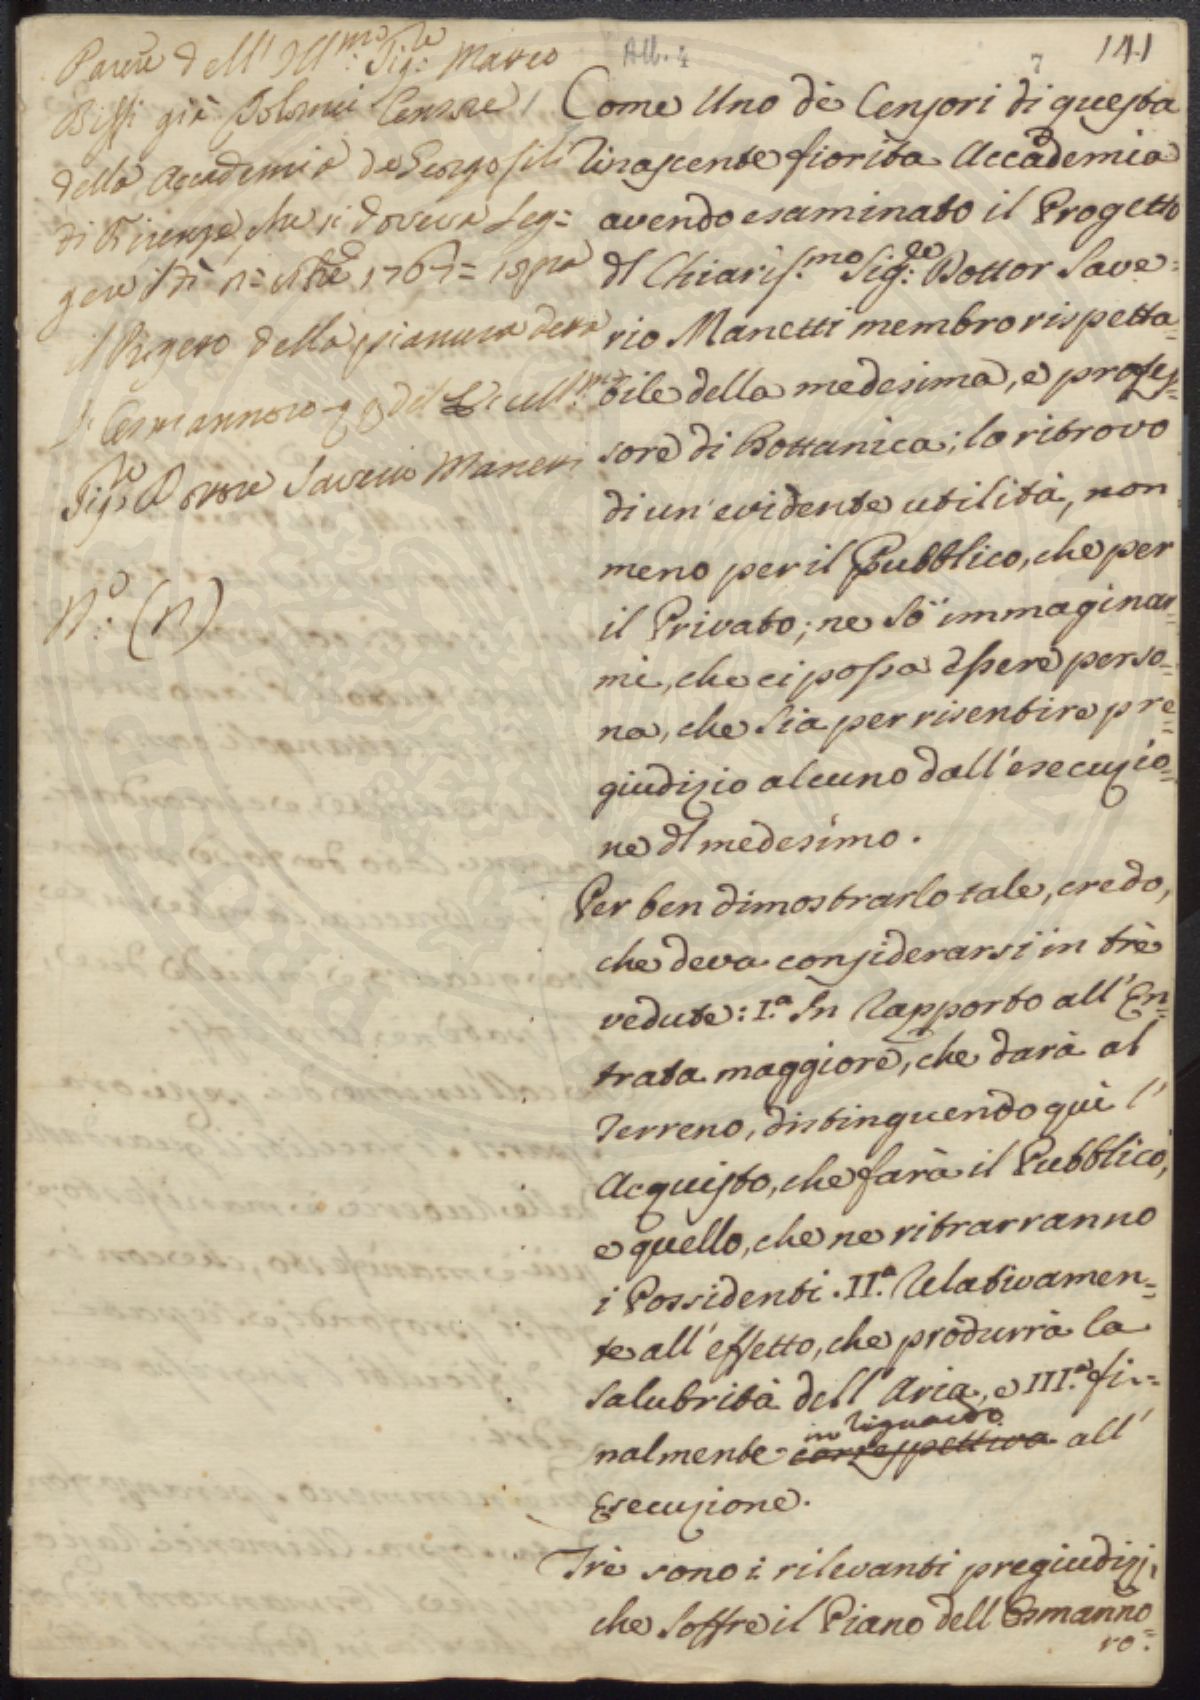 Parere dell' Ill.mo Sig.re Marco
Biffi già Tolomei Censore
della Accademia de Georgofili
di Firenze che si doveva Leg=
gere il dì 1767= sopra
il Progetto della pianura detta
l' Osmannoro del Ecell.mo
Sig.re Dottore Saverio Manetti
N.o (n)
Alb. 4
7
141
Come Uno de Censori di questa
Rinascente fiorita Accademia
avendo esaminato il Progetto
dl Chiaris.mo Sig.re Dottor Save=
rio Manetti membro rispetta=
bile della medesima, e profes=
sore di Bottanica; lo ritrovo
di un' evidente utilità, non
meno per il Pubblico, che per
il Privato; ne Sò immaginar=
mi, che ci possa essere perso=
na, che Sia per risentire pre=
giudizio alcuno dall' esecuzio=
ne dl medesimo.
Per ben dimostrarlo tale, credo,
che deva considerarsi in trè
vedute: I.a In Rapporto all' En=
trata maggiore, che darà al
Terreno, distinguendo quì l'
Acquisto, che farà il Pubblico,
e quello, che ne ritrarranno
i Possidenti. II.a Relativamen=
te all' effetto, che produrrà la
Salubrità dell' Aria, e III.a fi=
in Riguardo
nalmente correspettiva all'
Esecuzione.
Trè sono i rilevanti pregiudizj,
che Soffre il Piano dell Osmanno
ro=